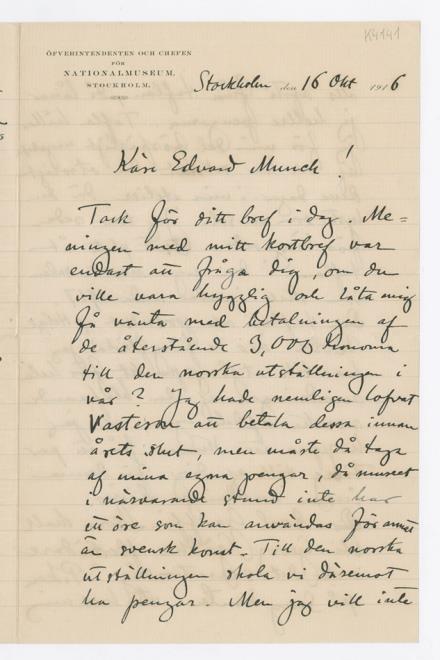 K4141
ÖFVERINTENDENTEN OCH CHEFEN
FÖR
NATIONALMUSEUM.
STOCKHOLM.
Stockholm den 16 Okt 1916
Käre Edvard Munch!
Tack för ditt bref i dag. Me=
ningen med mitt kortbref var
endast att fråga dig, om du
ville vara hygglig och låta mig
få vänta med betalningen af
de återstående 3,000 kronorna
till den norska utställningen i
vår? Jag hade nemligen lofvat
att betala dessa innan
årets slut, men måste då taga
af mina egna pengar, då museet
i närvarande stund inte har
ett öre som kan användas för annat
än svensk konst. Till den norska
utställningen skola vi däremot
ha pengar. Men jag vill inte